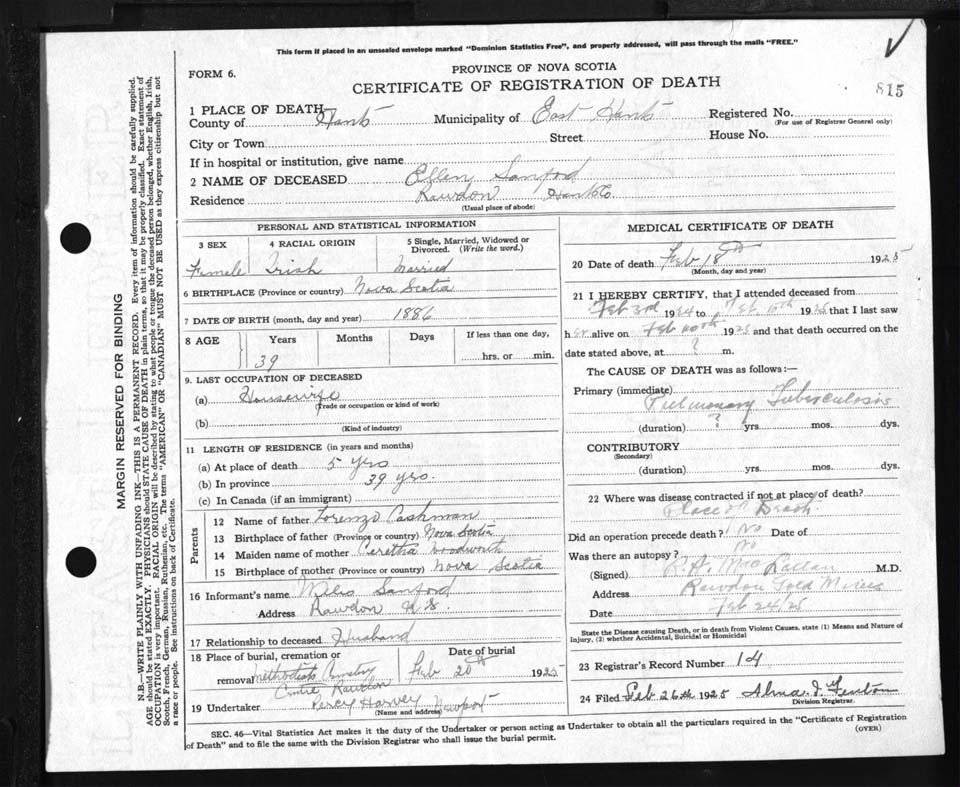 This form if placed in an unsealed envelope marked "Dominion Statistics Free", and properly addressed, will pass through the mails "FREE."
FORM 6.
PROVINCE OF NOVA SCOTIA
CERTIFICATE OF REGISTRATION OF DEATH
815
1 PLACE OF DEATH
County of Hants Municipality of East Hants Registered No.
(For use of Registrar General only)
City or Town Street House No.
If in hospital or institution, give name
2 NAME OF DECEASED Ellen Sanford
Residence Rawdon Hants Co
(Usual place of abode)
PERSONAL AND STATISTICAL INFORMATION
3 SEX 4 RACIAL ORIGIN 5 Single, Married, Widowed or Divorced. (Write the word.)
Female Irish Married
6 BIRTHPLACE (Province or country) Nova Scotia
7 DATE OF BIRTH (month, day and year) 1886
8 AGE Years Months Days If less than one day,
39 hrs. or min.
9. LAST OCCUPATION OF DECEASED
(a) Housewife
(Trade or occupation or kind of work)
(b)
(Kind of industry)
11 LENGTH OF RESIDENCE (in years and months)
(a) At place of death 5 yrs
(b) In province 39 yrs.
(c) In Canada (if an immigrant)
Parents
12 Name of father Lorenzo Cashman
13 Birthplace of father (Province or country) Nova Scotia
14 Maiden name of mother Woodworth
15 Birthplace of mother (Province or country) Nova Scotia
16 Informant's name Sanford
Address Rawdon N.S.
17 Relationship to deceased Husband
18 Place of burial, cremation or Date of burial
removal Methodist Cemetery Feb 20th 1925
Centre Rawdon
19 Undertaker Percy Harvey Newport
(Name and address)
MEDICAL CERTIFICATE OF DEATH
20 Date of death Feb 18th 1925
(Month, day and year)
21 I HEREBY CERTIFY, that I attended deceased from
Feb 3rd 1924 to Feb 10th 1925 that I last saw
her alive on Feb 10th 1925 and that death occurred on the
date stated above, at ? m.
The CAUSE OF DEATH was as follows:—
Primary (immediate) Pulmonary Tuberculosis
(duration) ? yrs. mos. dys.
CONTRIBUTORY
(Secondary)
(duration) yrs. mos. dys.
22 Where was disease contracted if not at place of death?
Place of Death
Did an operation precede death? No Date of
Was there an autopsy? No
(Signed) M.D.
Address Rawdon Gold Mines
Date Feb 24/25
State the Disease causing Death, or in death from Violent Causes, state (1) Means and Nature of Injury, (2) whether Accidental, Suicidal or Homicidal
23 Registrar's Record Number 14
24 Filed Feb 26th 1925 Alma J. Fenton
Division Registrar.
SEC. 46—Vital Statistics Act makes it the duty of the Undertaker or person acting as Undertaker to obtain all the particulars required in the "Certificate of Registration
of Death" and to file the same with the Division Registrar who shall issue the burial permit. (OVER)
MARGIN RESERVED FOR BINDING
N.B.—WRITE PLAINLY WITH UNFADING INK—THIS IS A PERMANENT RECORD. Every item of information should be carefully supplied.
AGE should be stated EXACTLY. PHYSICIANS should STATE CAUSE OF DEATH in plain terms, so that it may be properly classified. Exact statement of
OCCUPATION is very important. RACIAL ORIGIN will be described by stating to what people or tongue the deceased person belonged, whether English, Irish,
Scotch, French, German, Russian, Ruthenian, etc. The terms "AMERICAN" or "CANADIAN" MUST NOT BE USED as they express citizenship but not
a race or people. See instructions on back of Certificate.